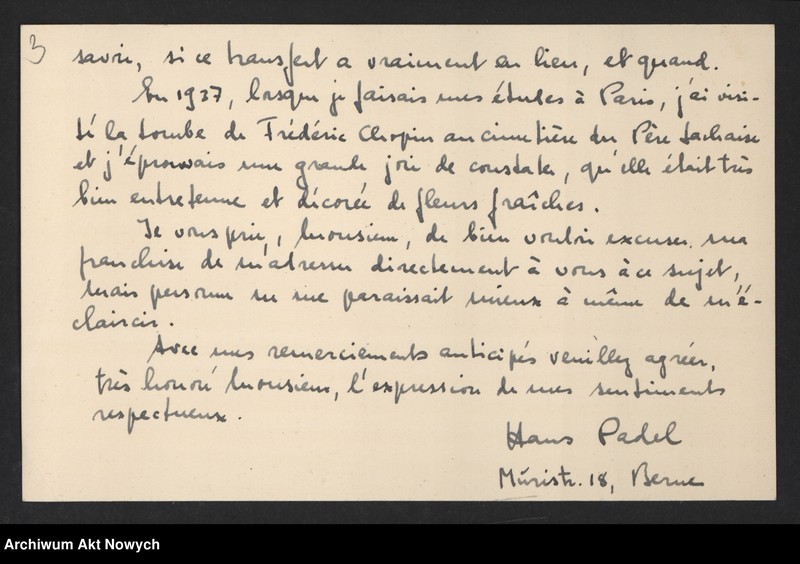 3
savoir, si ce transfert a vraiment eu lieu, et quand.
En 1937, lorsque je faisais mes études à Paris, j'ai visi-
té la tombe de Frédéric Chopin au cimetière du Père Lachaise
et j'éprouvais une grande joie de constater, qu'elle était très
bien entretenue et décorée de fleurs fraîches.
Je vous prie, Monsieur, de bien vouloir excuser ma
franchise de m'adresser directement à vous à ce sujet,
mais personne ne me paraissait mieux à même de m'é-
claircir.
Avec mes remerciements anticipés veuillez agréer,
très honoré Monsieur, l'expression de mes sentiments
respectueux.
Hans Padel
Müristr. 18, Berne
Archiwum Akt Nowych